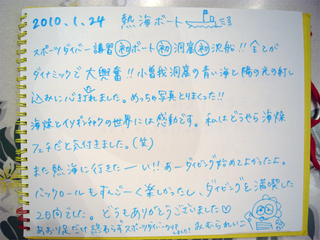 2010.1.24 熱海ボート
スポーツダイバー講習 初ボート 初洞窟 初沈船!! 全てが
ダイナミックで大興奮!! 小曽我洞窟の青い海と陽の光の射し
込みにハ打れました。めっちゃ写真とりまくった!!
海燈とイソギンチャクの世界には感動です。私はどうやら海燈
フェチだと気付きました。(笑)
また熱海に行きたーい!! あーダイビング始めてよかったよ。
バックロールもすんごーく楽しかったし、ダイビングを満喫した
2日間でした。どうもありがとうございました♡
あおり足だけ終わらずスポーツダイバー
みむられいこ